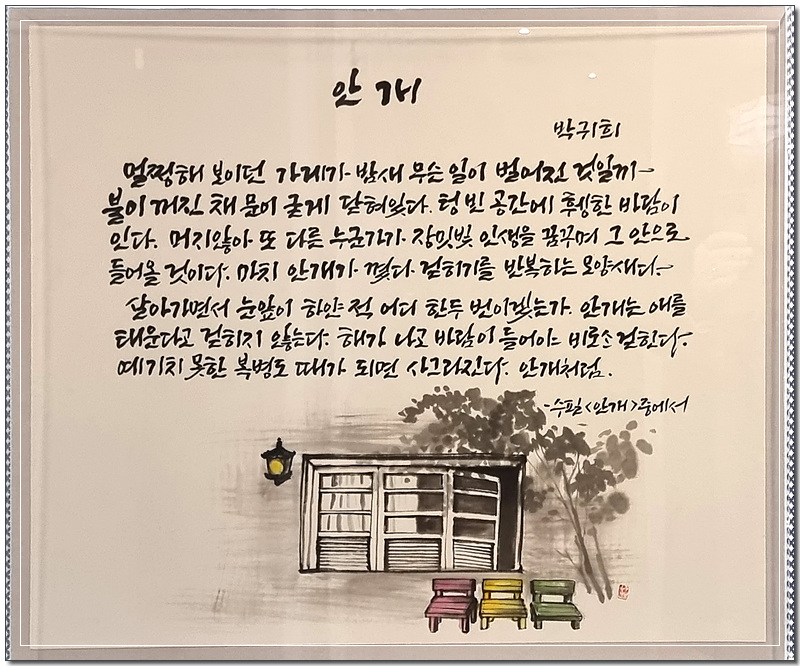 안개
박귀희
멀쩡해 보이던 가게가 밤새 무슨 일이 벌어진 것일까
불이 꺼진 채 문이 굳게 닫혀있다. 텅 빈 공간에 휑한 바람이
인다. 머지않아 또 다른 누군가가 장밋빛 인생을 꿈꾸며 그 안으로
들어올 것이다. 마치 안개가 꼈다 걷히기를 반복하는 모양새다.
살아가면서 눈앞이 하얀 적 어디 한두 번이겠는가. 안개는 애를
태운다고 걷히지 않는다. 해가 나고 바람이 들어야 비로소 걷힌다.
예기치 못한 복병도 때가 되면 사그라진다. 안개처럼.
-수필<안개>중에서